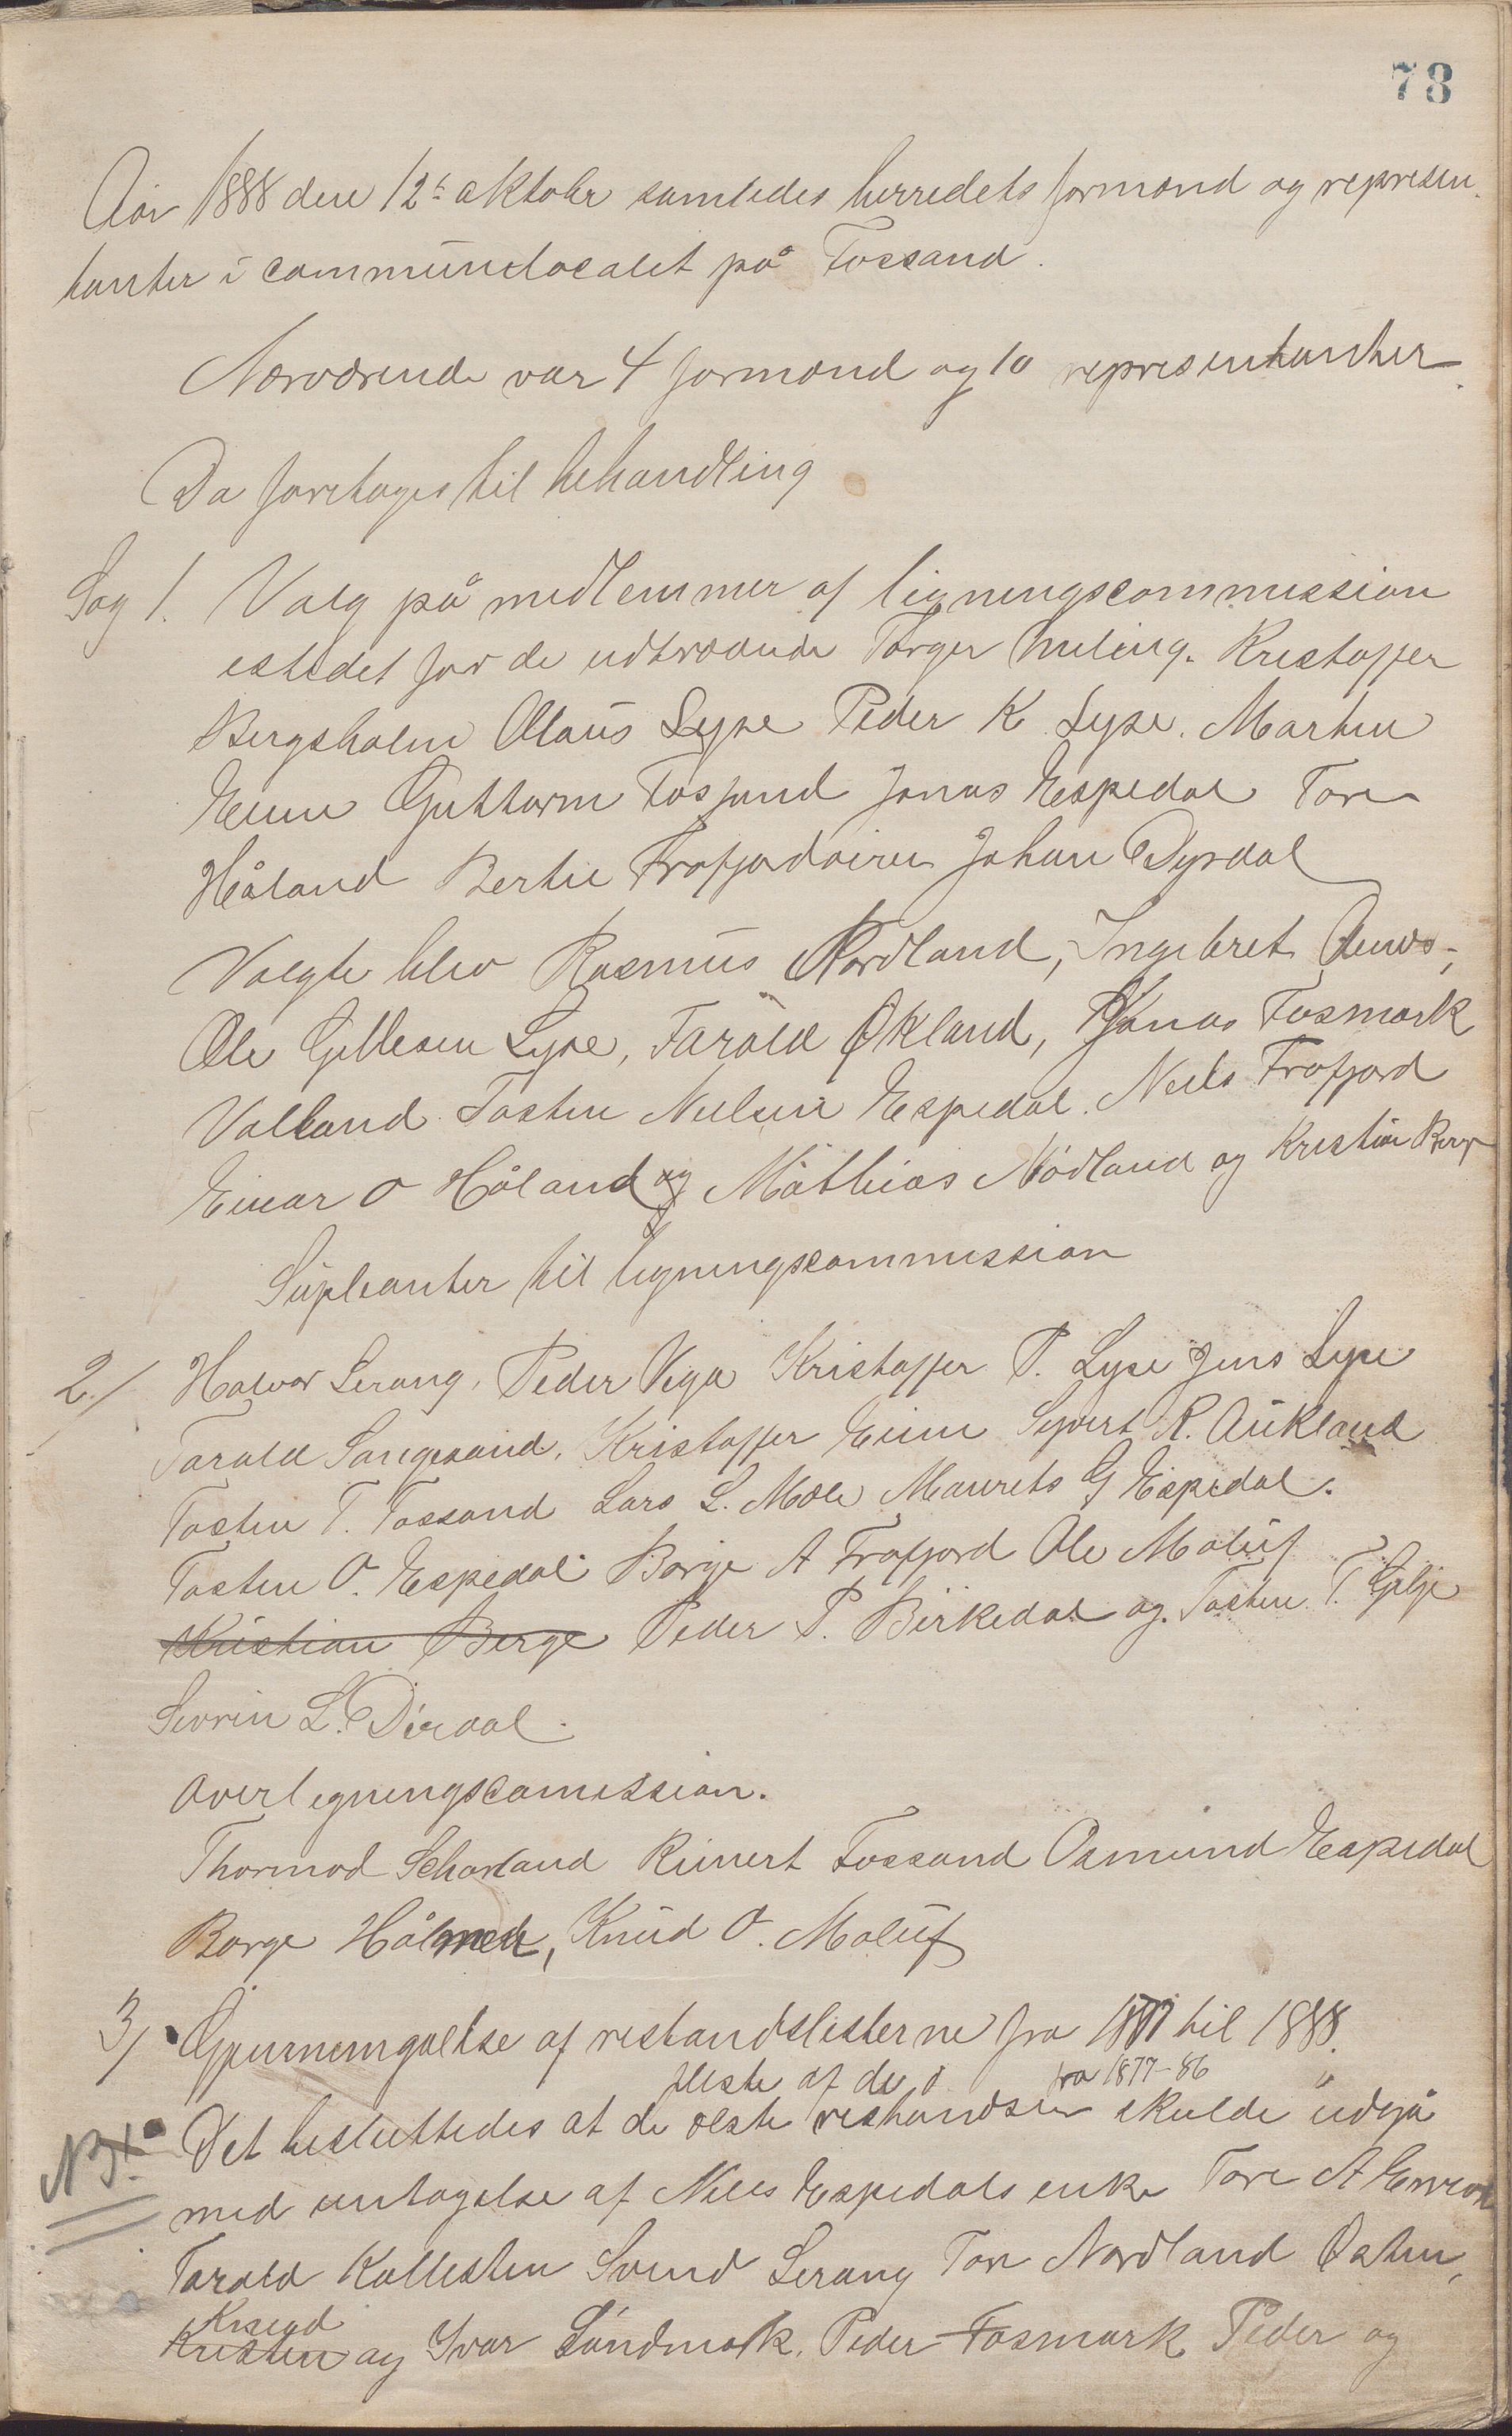 78
Aar 1888 den 12te oktobr samledes herredets formænd og represen
tanter i communelocalet på Fossand.
Nærværende var 4 formænd og 10 representanter.
Da foretoges til behandling
Sag 1. Valg på medlemmer af ligningscommission
istedet for de udtrædende Torger Meling. Kristoffer
Bergsholm Olaus Lyse Peder K Lyse. Marten
Eiane Guttorm Fossand Jonas Espedal Tore
Håland Bertil Frafjord Johan Dyrdal
Valgte blev Rasmus Nordland, Ingebret
Ole Gillesen Lyse, Tarald Økland, Jonas Fosmark
Valland. Tosten Nielsen Espedal. Niels Frafjord
Einar O Håland og Mathias Nådland og Kristian Berge
Supleanter til ligningscommission
2/ Halvor Lerang, Peder Vega Kristoffer P. Lyse Jens Lyse
Tarald Sangesand, Kristoffer Eiane Syvert R. Aukland
Tosten T. Fossand Lars L. Mæle Maurits G Espedal.
Tosten O. Espedal Børge A Frafjord Ole Maluf
Kristian Berge Peder P. Birkedal og Tosten T. Gilje
Sevrin L. Dirdal.
overligningscomission.
Thormod Schorland Reinert Fossand Osmund Espedal
Børge Håland, Knud O. Maluf
3/ Gjennemgåelse af restandslisterne fra 1877 til 1888.
fleste af de fra 1877-86
NB Det besluttedes at de ælste restandser skulde udgå
med untagelse af Niels Espedals enke Tore A
Tarald Kallesten Svend Lerang Tore Nordland Østen,
Knud
Kristen og Ivar Landmark, Peder Fosmark Peder og